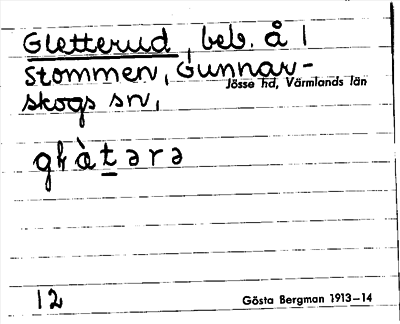 Gletterud, beb. å |
Stommen, Gunnar-
Jösse hd, Värmlands län
skogs sn,
12
Gösta Bergman 1913–14